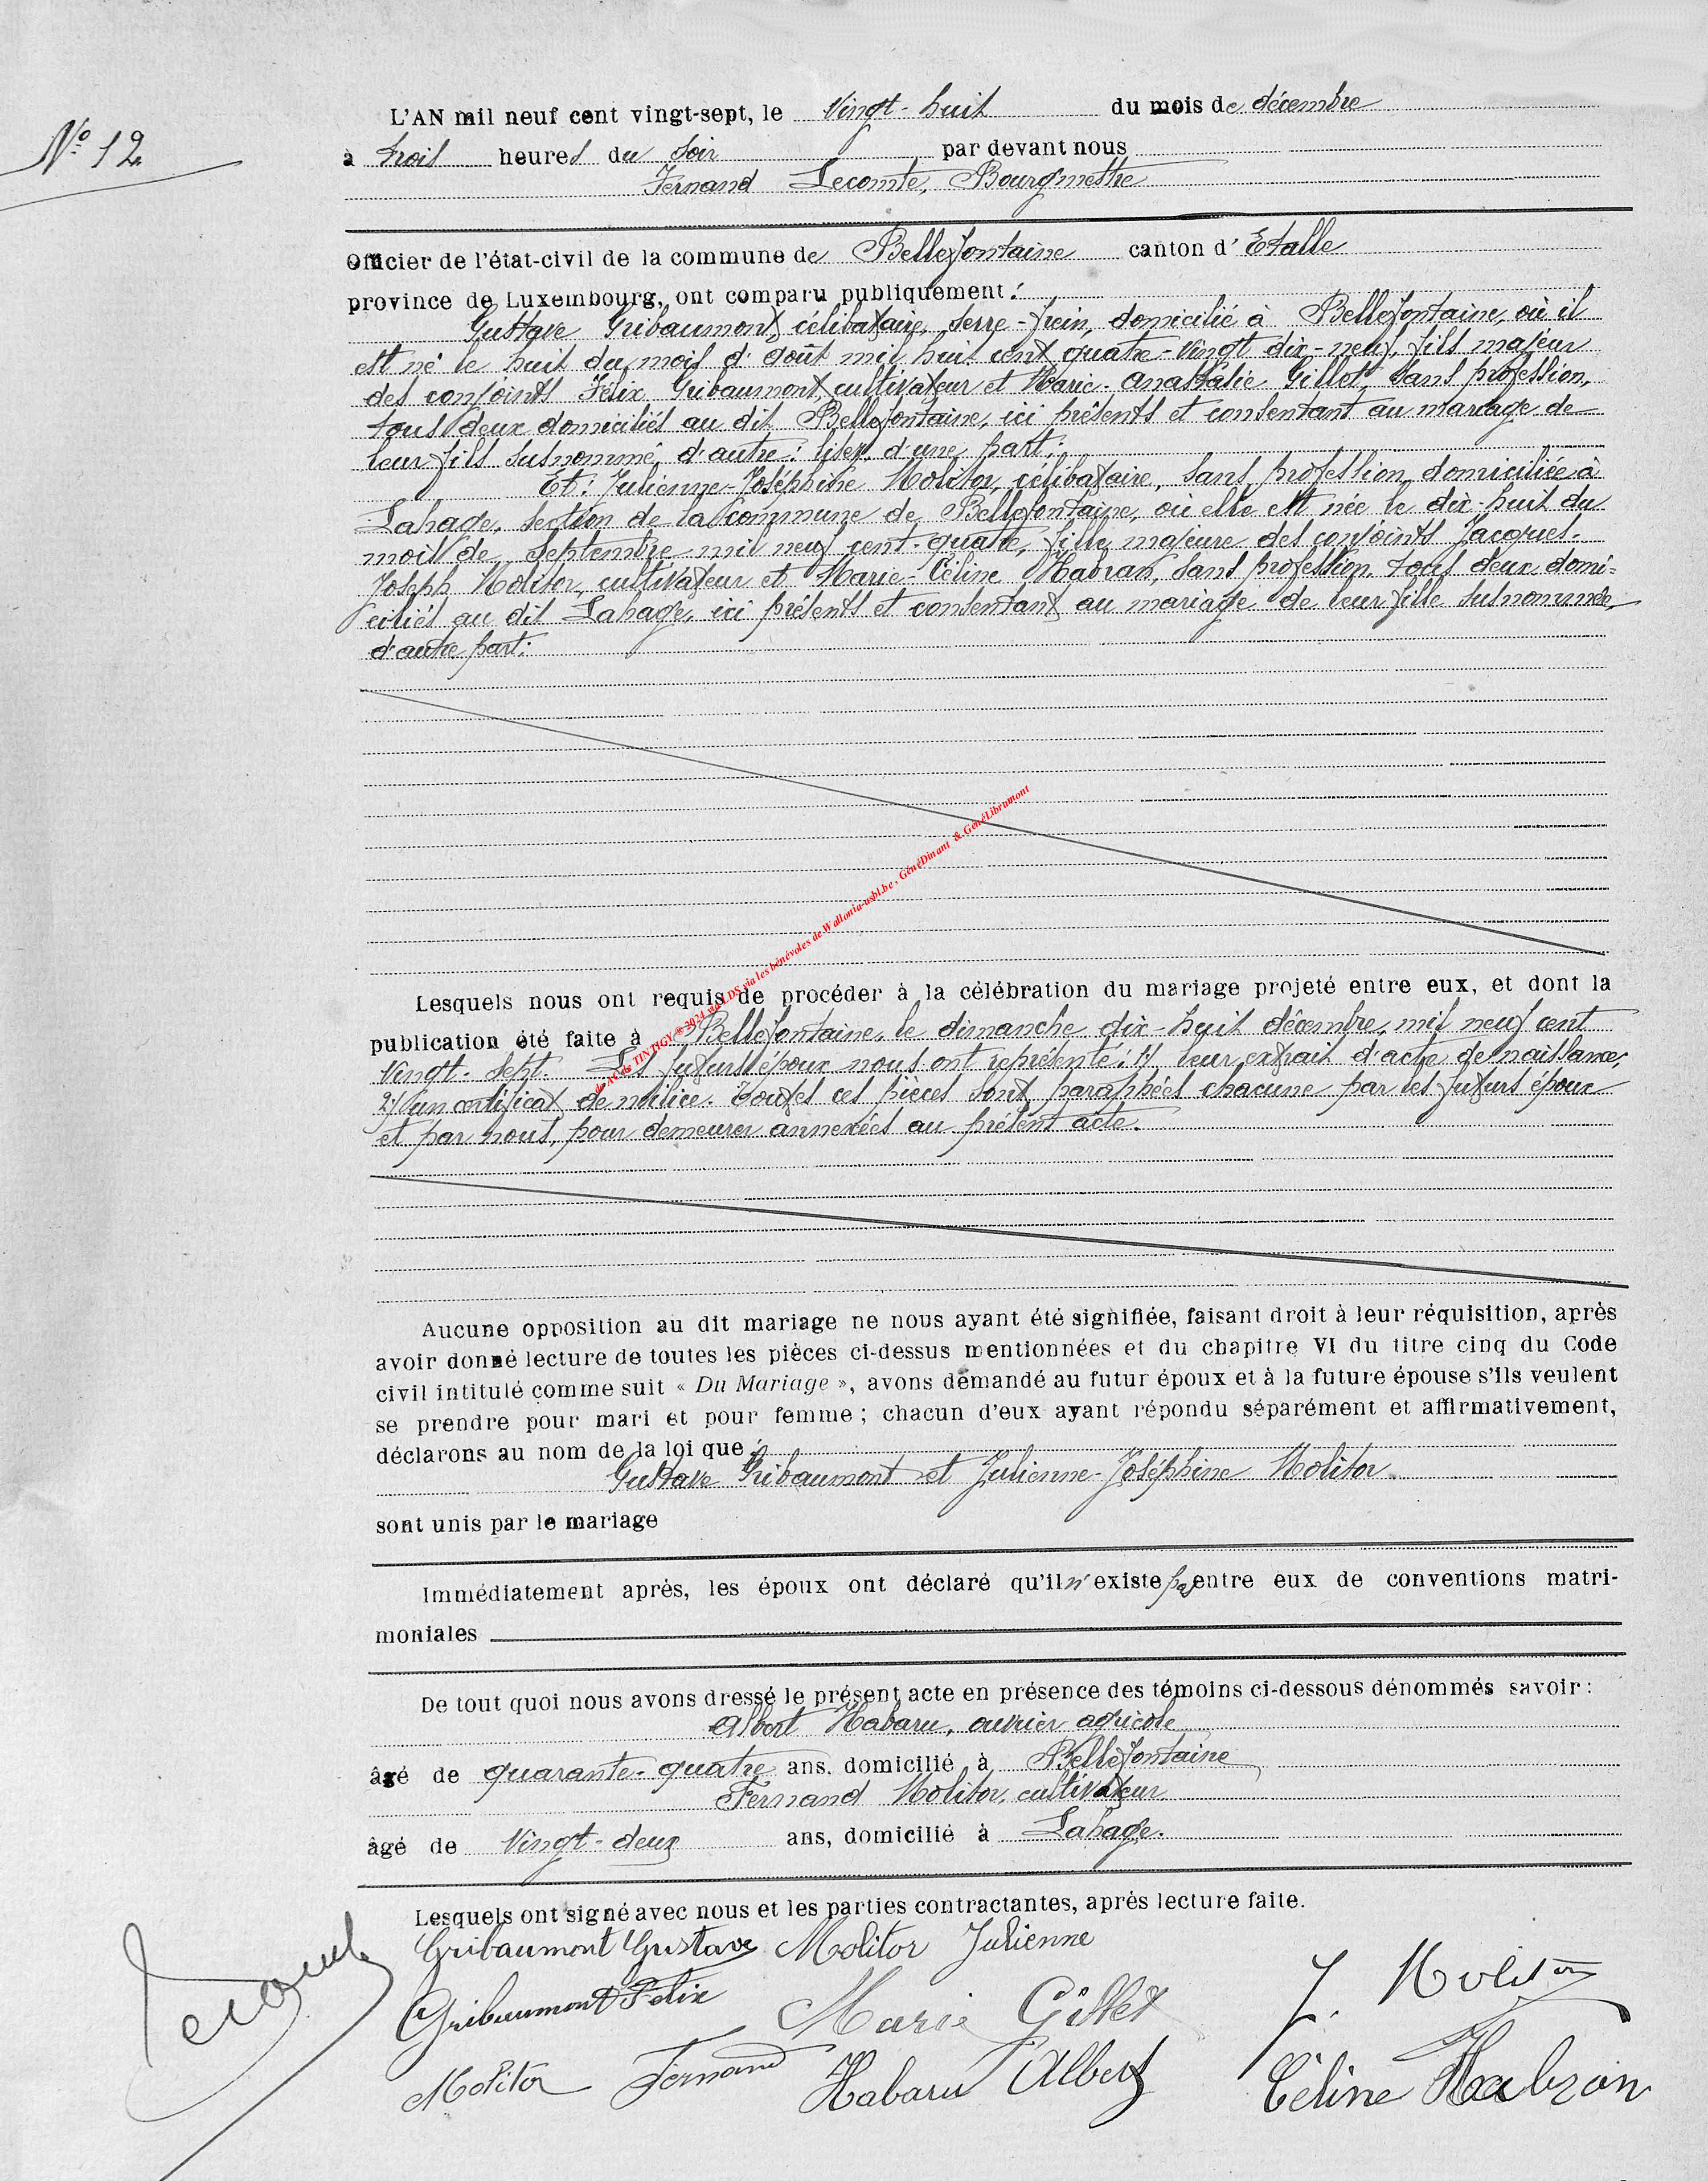 N° 12
L'AN mil neuf cent vingt-sept, le Vingt-huit du mois de décembre
à trois heures du soir par devant nous
Fernand Lecomte, Bourgmestre
Officier de l'état-civil de la commune de Bellefontaine canton d'Etalle
province de Luxembourg, ont comparu publiquement :
Gustave Gribaumont, célibataire, serre-frein, domicilié à Bellefontaine, où il
est né le huit du mois d'août mil huit cent quatre-vingt dix-neuf, fils majeur
des conjoints Félix Gribaumont, cultivateur et Marie-Anathalie Gillet, sans profession,
tous deux domiciliés au dit Bellefontaine, ici présents et consentant au mariage de
leur fils susnommé, d'autre : lisez d'une part :
Et : Julienne-Joséphine Molitor, célibataire, sans profession, domiciliée à
Lahage, section de la commune de Bellefontaine, où elle est née le dix-huit du
mois de Septembre mil neuf cent-quatre, fille majeure des conjoints Jacques-
Joseph Molitor, cultivateur et Marie-Céline Habran, sans profession, tous deux domi-
ciliés au dit Lahage, ici présents et consentant au mariage de leur fille susnommée
d'autre part :
de AC de TINTIGY ® 2024 via LDS via les bénévoles de Wallonia-asbl.be, GénéDinant & GénéLibramont
Lesquels nous ont requis de procéder à la célébration du mariage projeté entre eux, et dont la
publication été faite à Bellefontaine, le dimanche dix-huit décembre, mil neuf cent
Vingt-sept. Les futurs époux nous ont représenté : 1/ leur extrait d'acte de naissance;
2/ un certificat de milice. Toutes ces pièces sont paraphées chacune par les futurs époux
et par nous, pour demeurer annexées au présent acte.
Aucune opposition au dit mariage ne nous ayant été signifiée, faisant droit à leur réquisition, après
avoir donné lecture de toutes les pièces ci-dessus mentionnées et du chapitre VI du titre cinq du Code
civil intitulé comme suit « Du Mariage », avons demandé au futur époux et à la future épouse s'ils veulent
se prendre pour mari et pour femme ; chacun d'eux ayant répondu séparément et affirmativement,
déclarons au nom de la loi que :
Gustave Gribaumont et Julienne-Joséphine Molitor
sont unis par le mariage
Immédiatement après, les époux ont déclaré qu'il n'existe pas entre eux de conventions matri-
moniales
De tout quoi nous avons dressé le présent acte en présence des témoins ci-dessous dénommés savoir :
Albert Habaru, ouvrier agricole
âgé de quarante-quatre ans, domicilié à Bellefontaine
Fernand Molitor, cultivateur
âgé de Vingt-deux ans, domicilié à Lahage.
Lesquels ont signé avec nous et les parties contractantes, après lecture faite.
Gribaumont Gustave Molitor Julienne
Lecomte Gribaumont Felix Marie Gillet J. Molitor
Molitor Fernand Habaru Albert Céline Habran